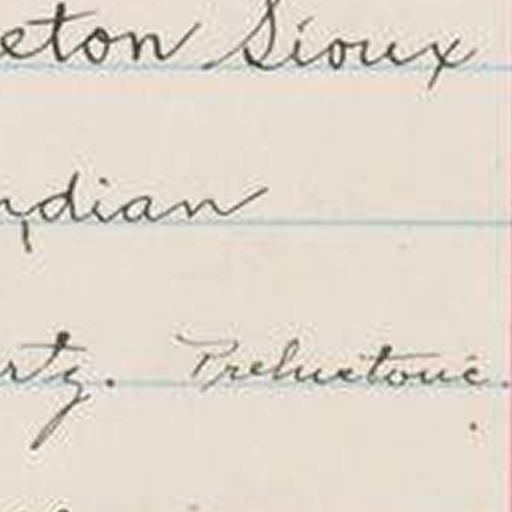 eton Sioux
ndian
rtz. Prehistoric.